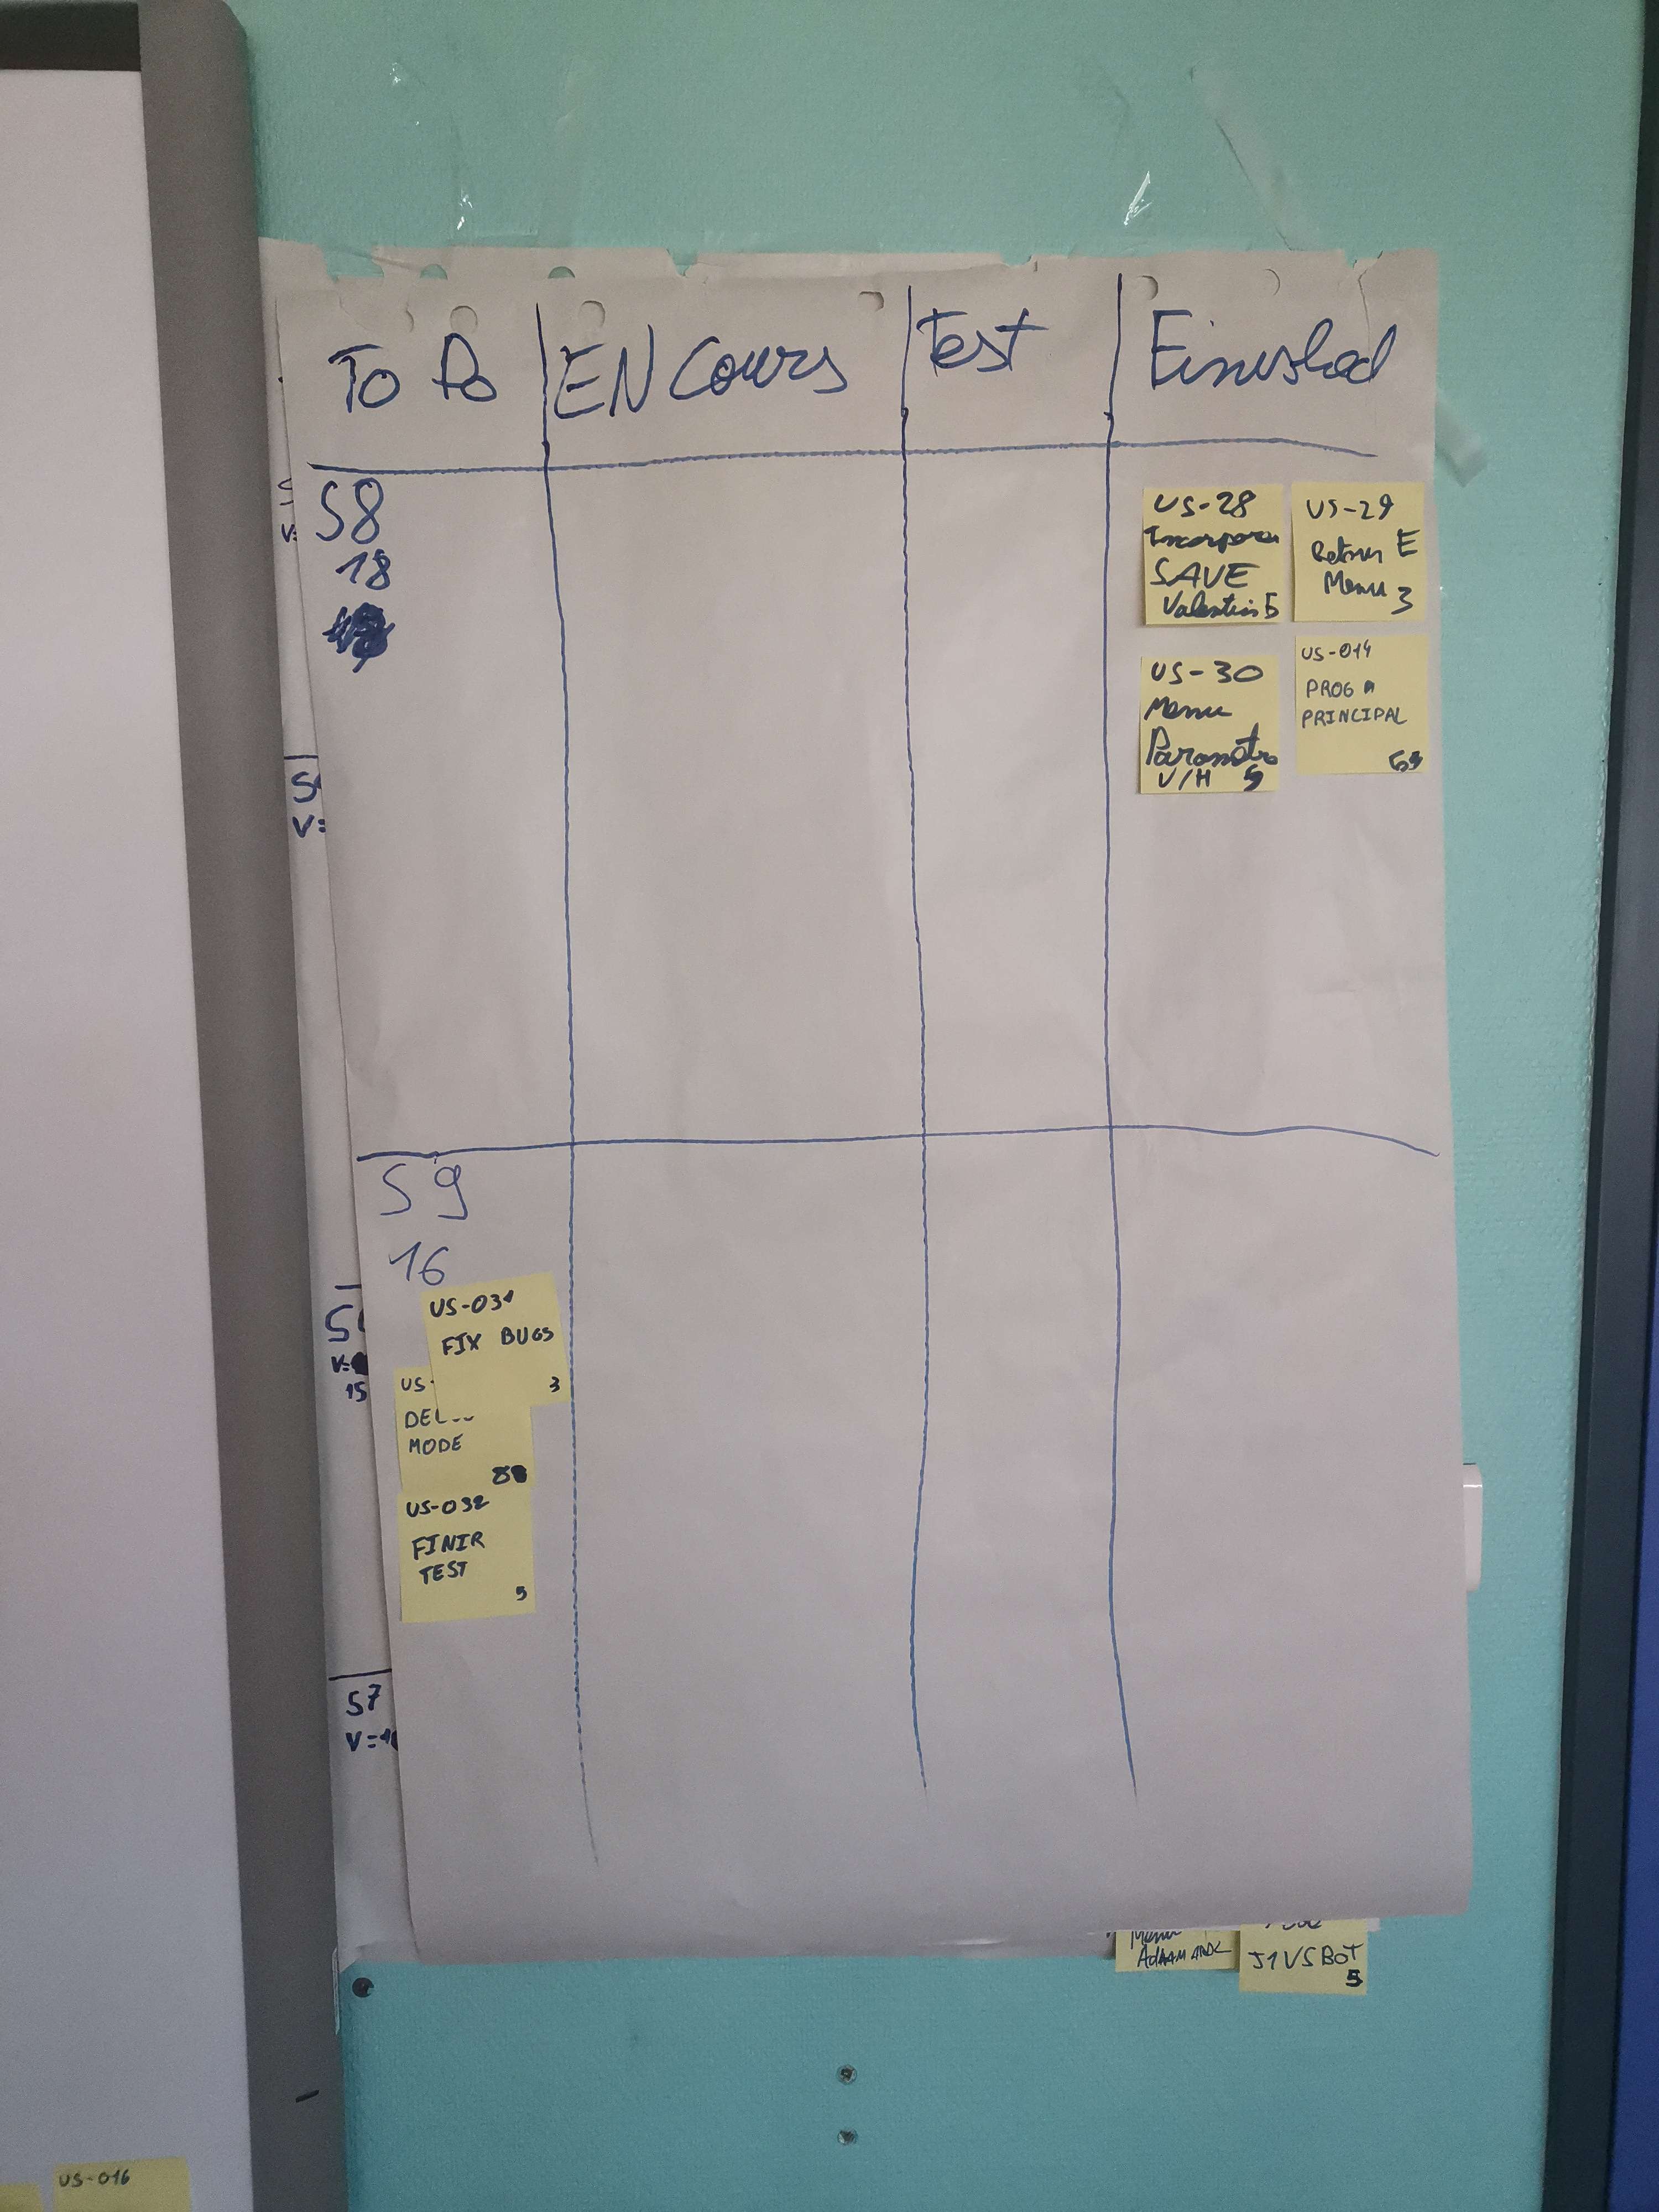 To Do
EN Cours
Test
Finished
S8
18
US-28
Incorporer
SAVE
Valentin 5
US-29
Retour E
Menu 3
US-30
Menu
Parametre
V/H 5
US-014
PROG
PRINCIPAL
S9
16
US-031
FIX BUGS
3
US-
MODE
8
US-032
FINIR
TEST
5
V:
S
V=
S
V=
15
S7
V=1
Menu
J1 VS BOT
5
US-016